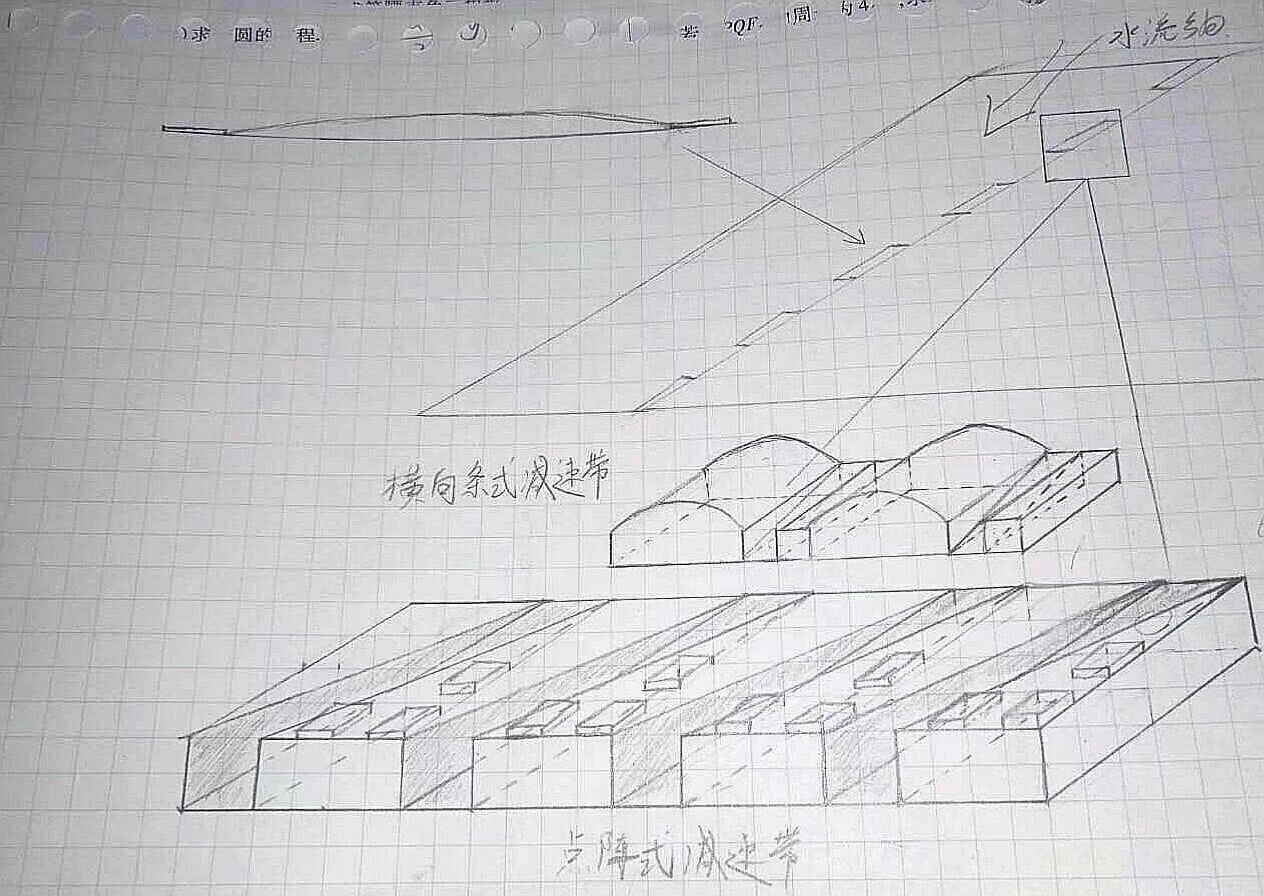 )求 圆的 程. 若 PQF. 周 为4.
水流向
横向条式减速带
点阵式减速带